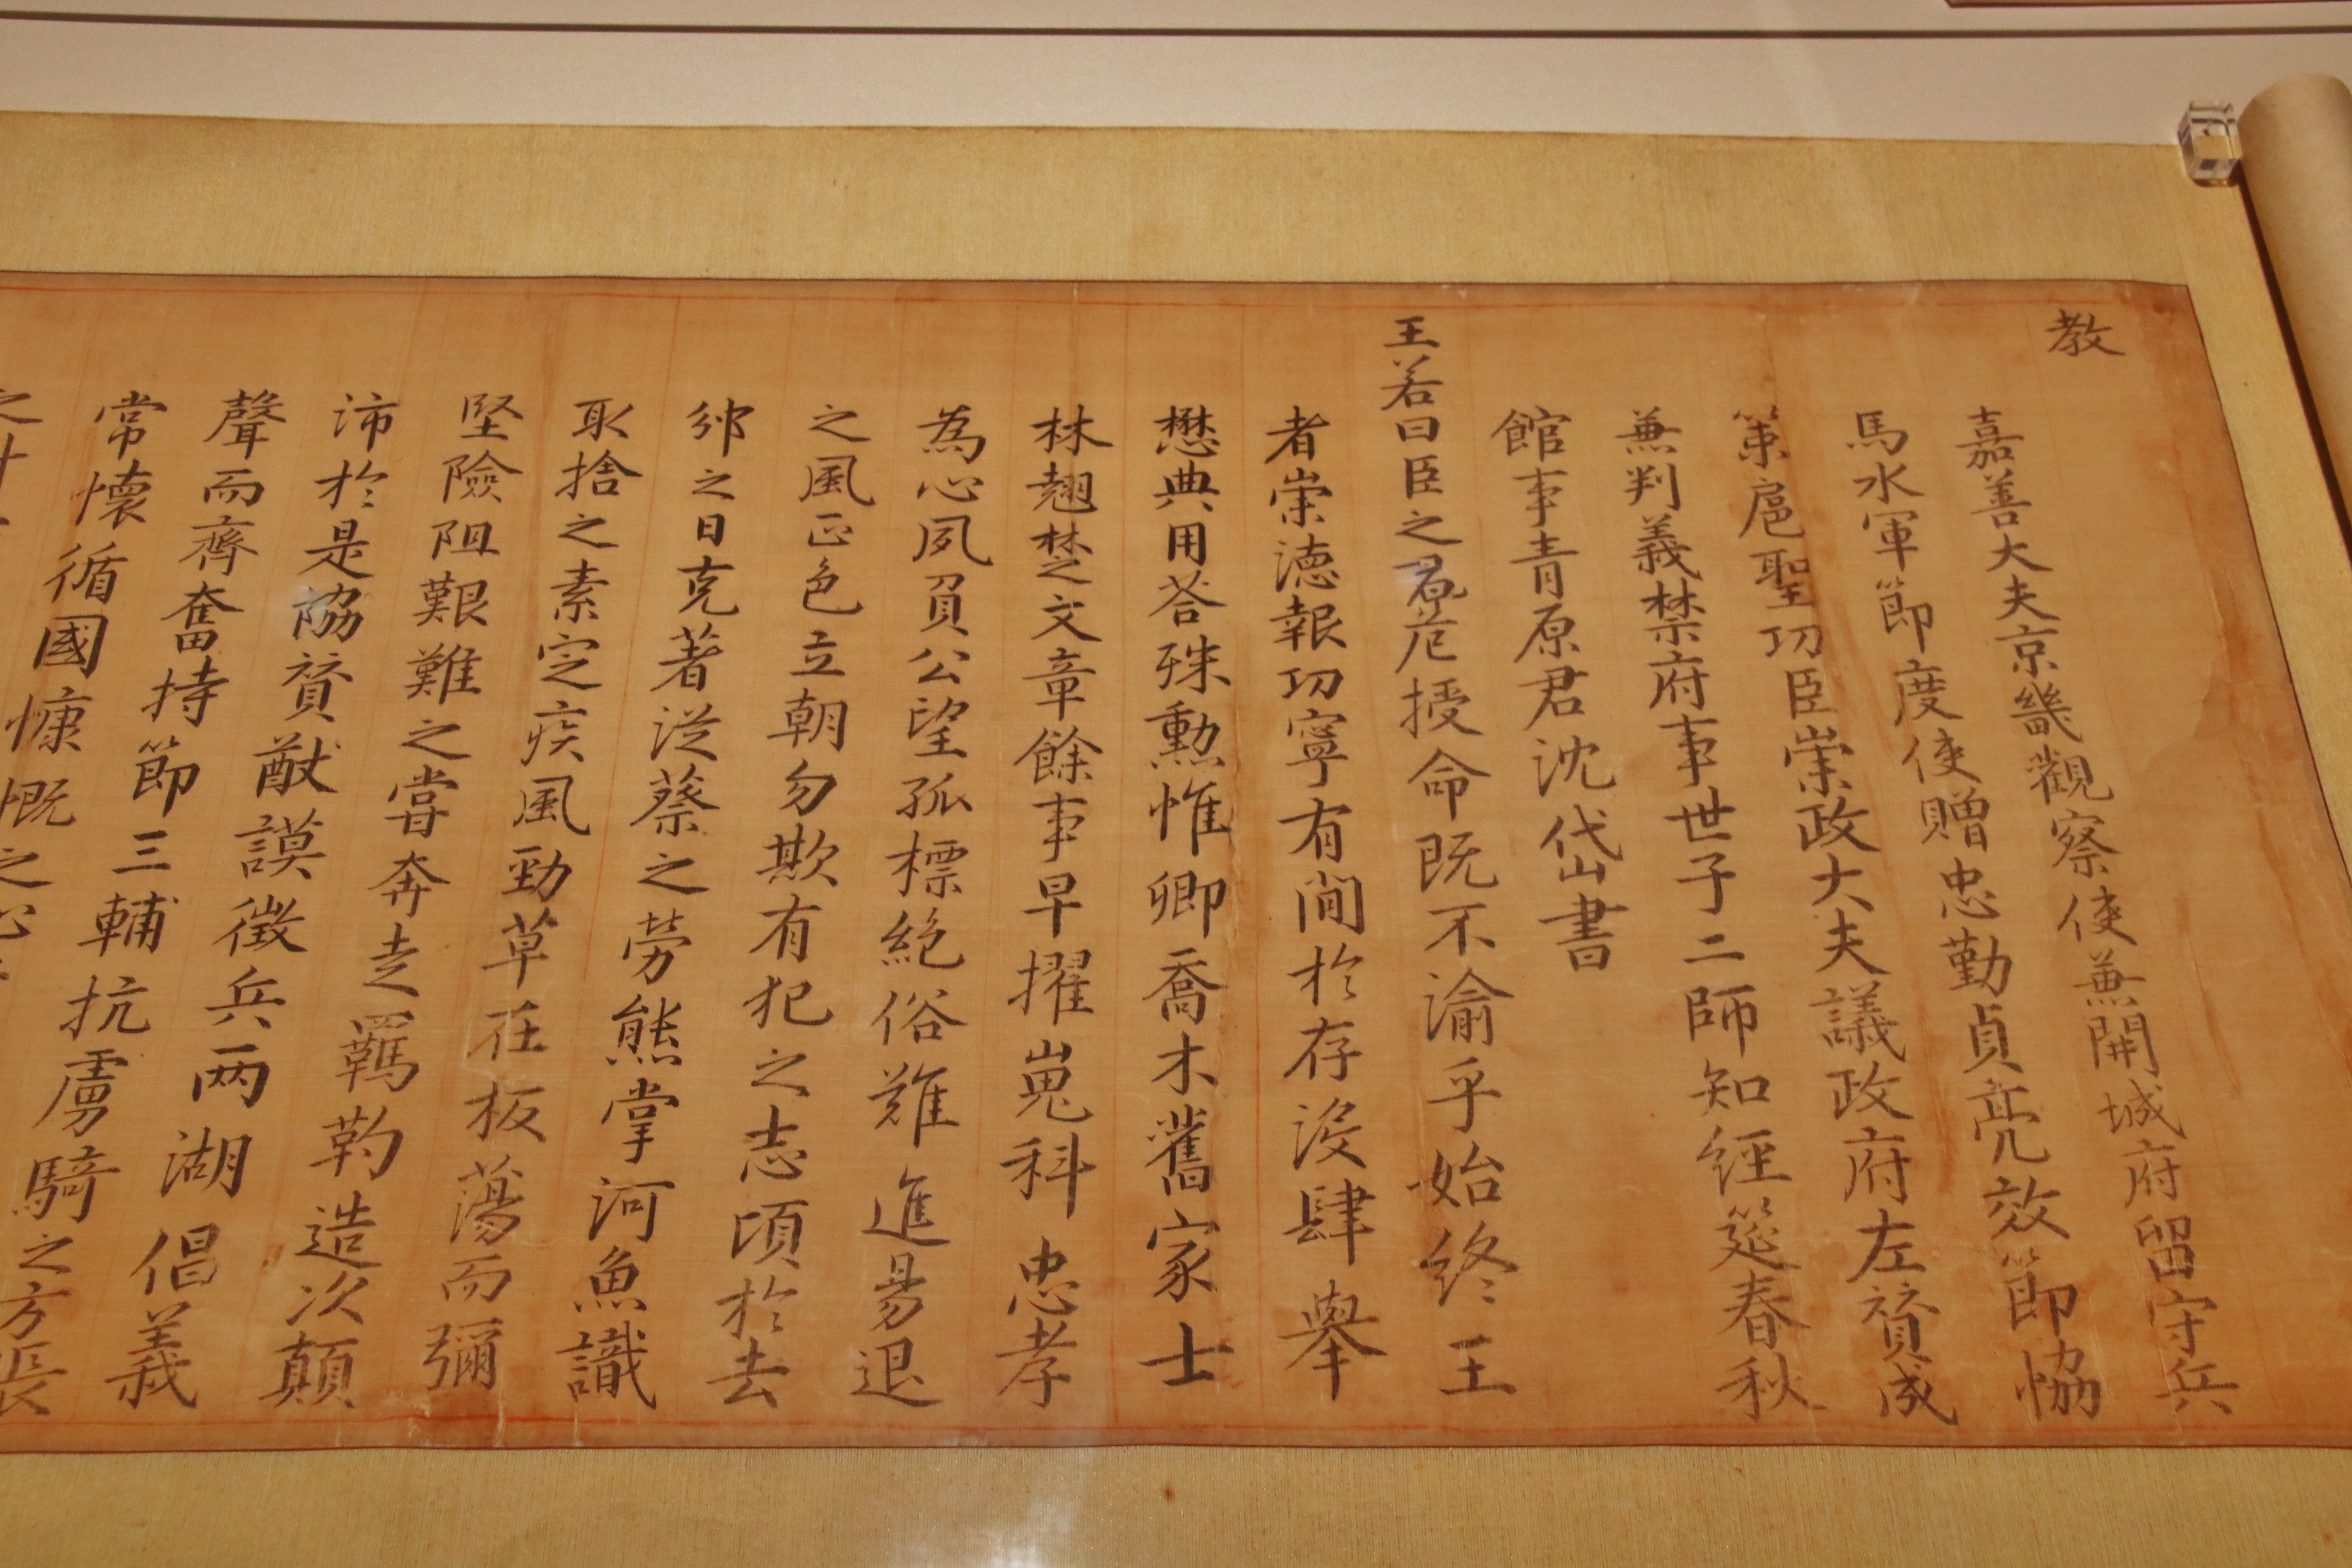 教
嘉善大夫京畿觀察使兼開城府留守兵
馬水軍節度使贈忠勤貞亮效節恊
策扈聖功臣崇政大夫議政府左贊成
兼判義禁府事世子二師知經筵春秋
館事青原君沈岱書
王若曰臣之君危授命既不渝乎始終王
者崇德報功寧有間於存沒肆舉
懋典用答殊勳惟卿喬木舊家士
林翹楚文章餘事早擢嵬科忠孝
為心夙負公望孤標絕俗難進易退
之風正色立朝勿欺有犯之志頃於去
邠之日克著從蔡之勞熊掌河魚識
取捨之素定疾風勁草在板蕩而彌
堅險阻艱難之嘗奔走羈靮造次顛
沛於是協贊猷謨徵兵兩湖倡義
聲而齊奮持節三輔抗虜騎之方張
常懷循國慷慨之心